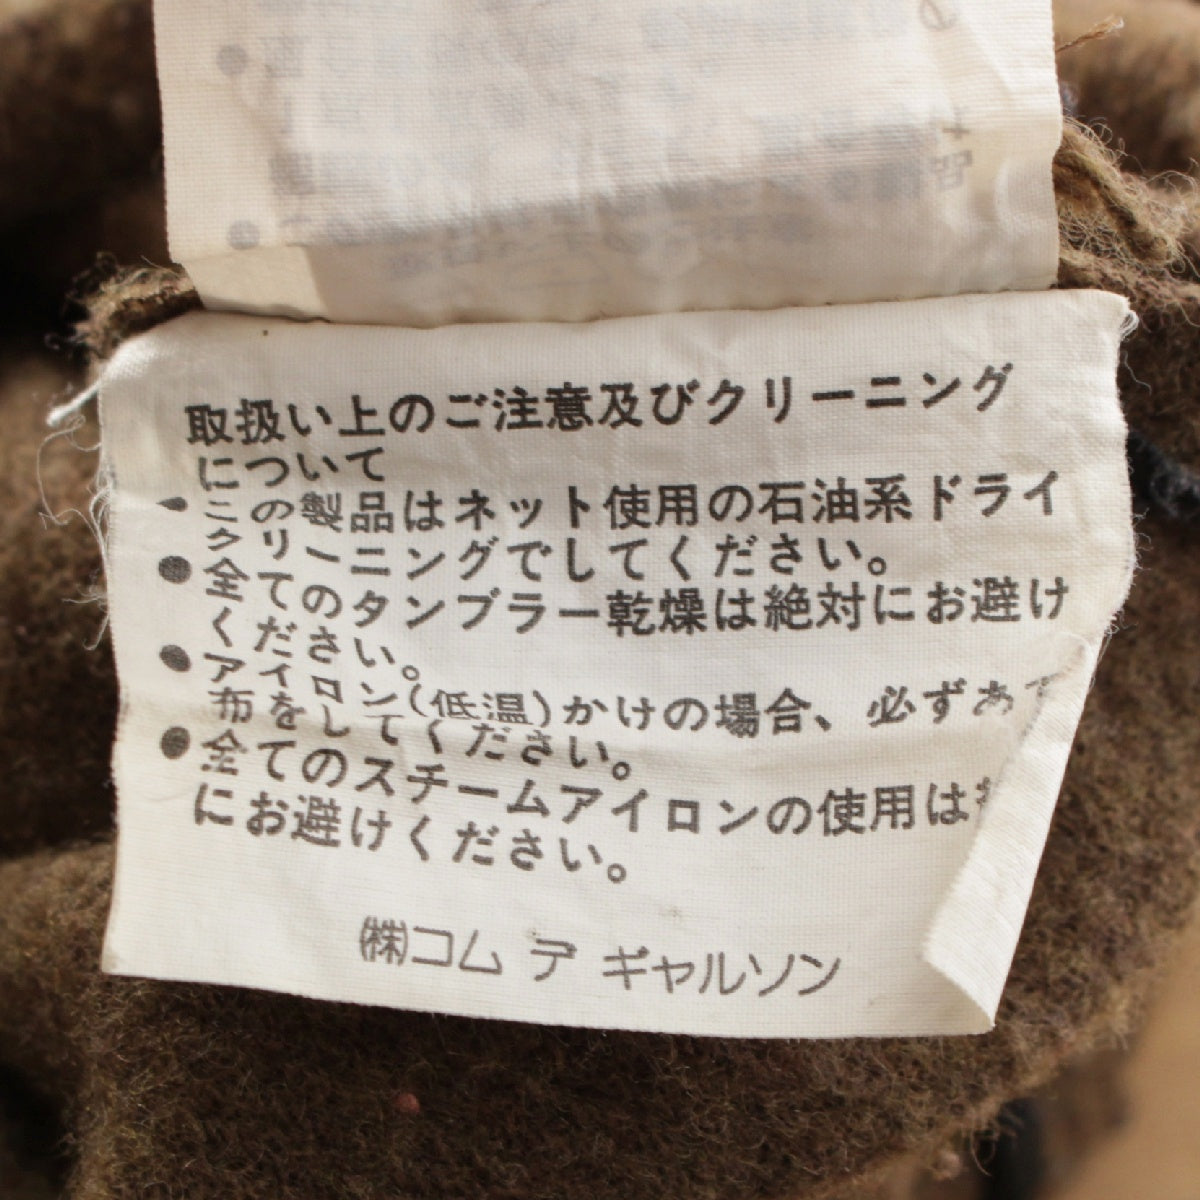 取扱い上のご注意及びクリーニング
について
この製品はネット使用の石油系ドライ
クリーニングでしてください。
● 全てのタンブラー乾燥は絶対にお避け
ください。
● アイロン(低温)かけの場合、必ずあ
布をしてください。
● 全てのスチームアイロンの使用は
にお避けください。
㈱コム デ ギャルソン